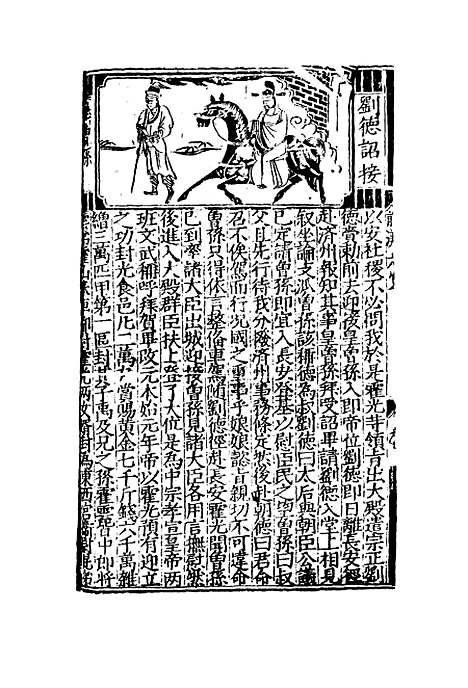 劉德詔接
以安社後不必問我於是霍光幷領旨出大殿遣宗正劉
德賞勅前去迎後皇曾孫入即帝位劉德即日離長安徑
赴济州報知其事皇曾孫拜受詔畢請劉德入堂上相見
叙坐論文派曾孫該稱德為叔劉德曰太后與朝臣公議
已定請曾孫即宜入長安登基以慰臣民之望曾孫曰叔
父且先行待我分撥济州事務條定然後赴朝德曰君命
召不俟駕而行况國之重事乎娘娘懿旨親切不可違命
曾孫只得依言整俻車駕随劉德徑乱長安霍光聞曾孫
已到率諸大臣出城迎接曾孫見諸大臣各用言撫慰然
後進入大殿群臣扶上登了大位是為中宗孝宣皇帝两
班文武稱呼拜賀畢改元本始元年帝以霍光預有迎立
之功封光食邑北二萬户賞賜黄金七千斤錢六千萬雜
繒三萬匹甲第一區封其子禹及兄之孫霍雲皆中郎将